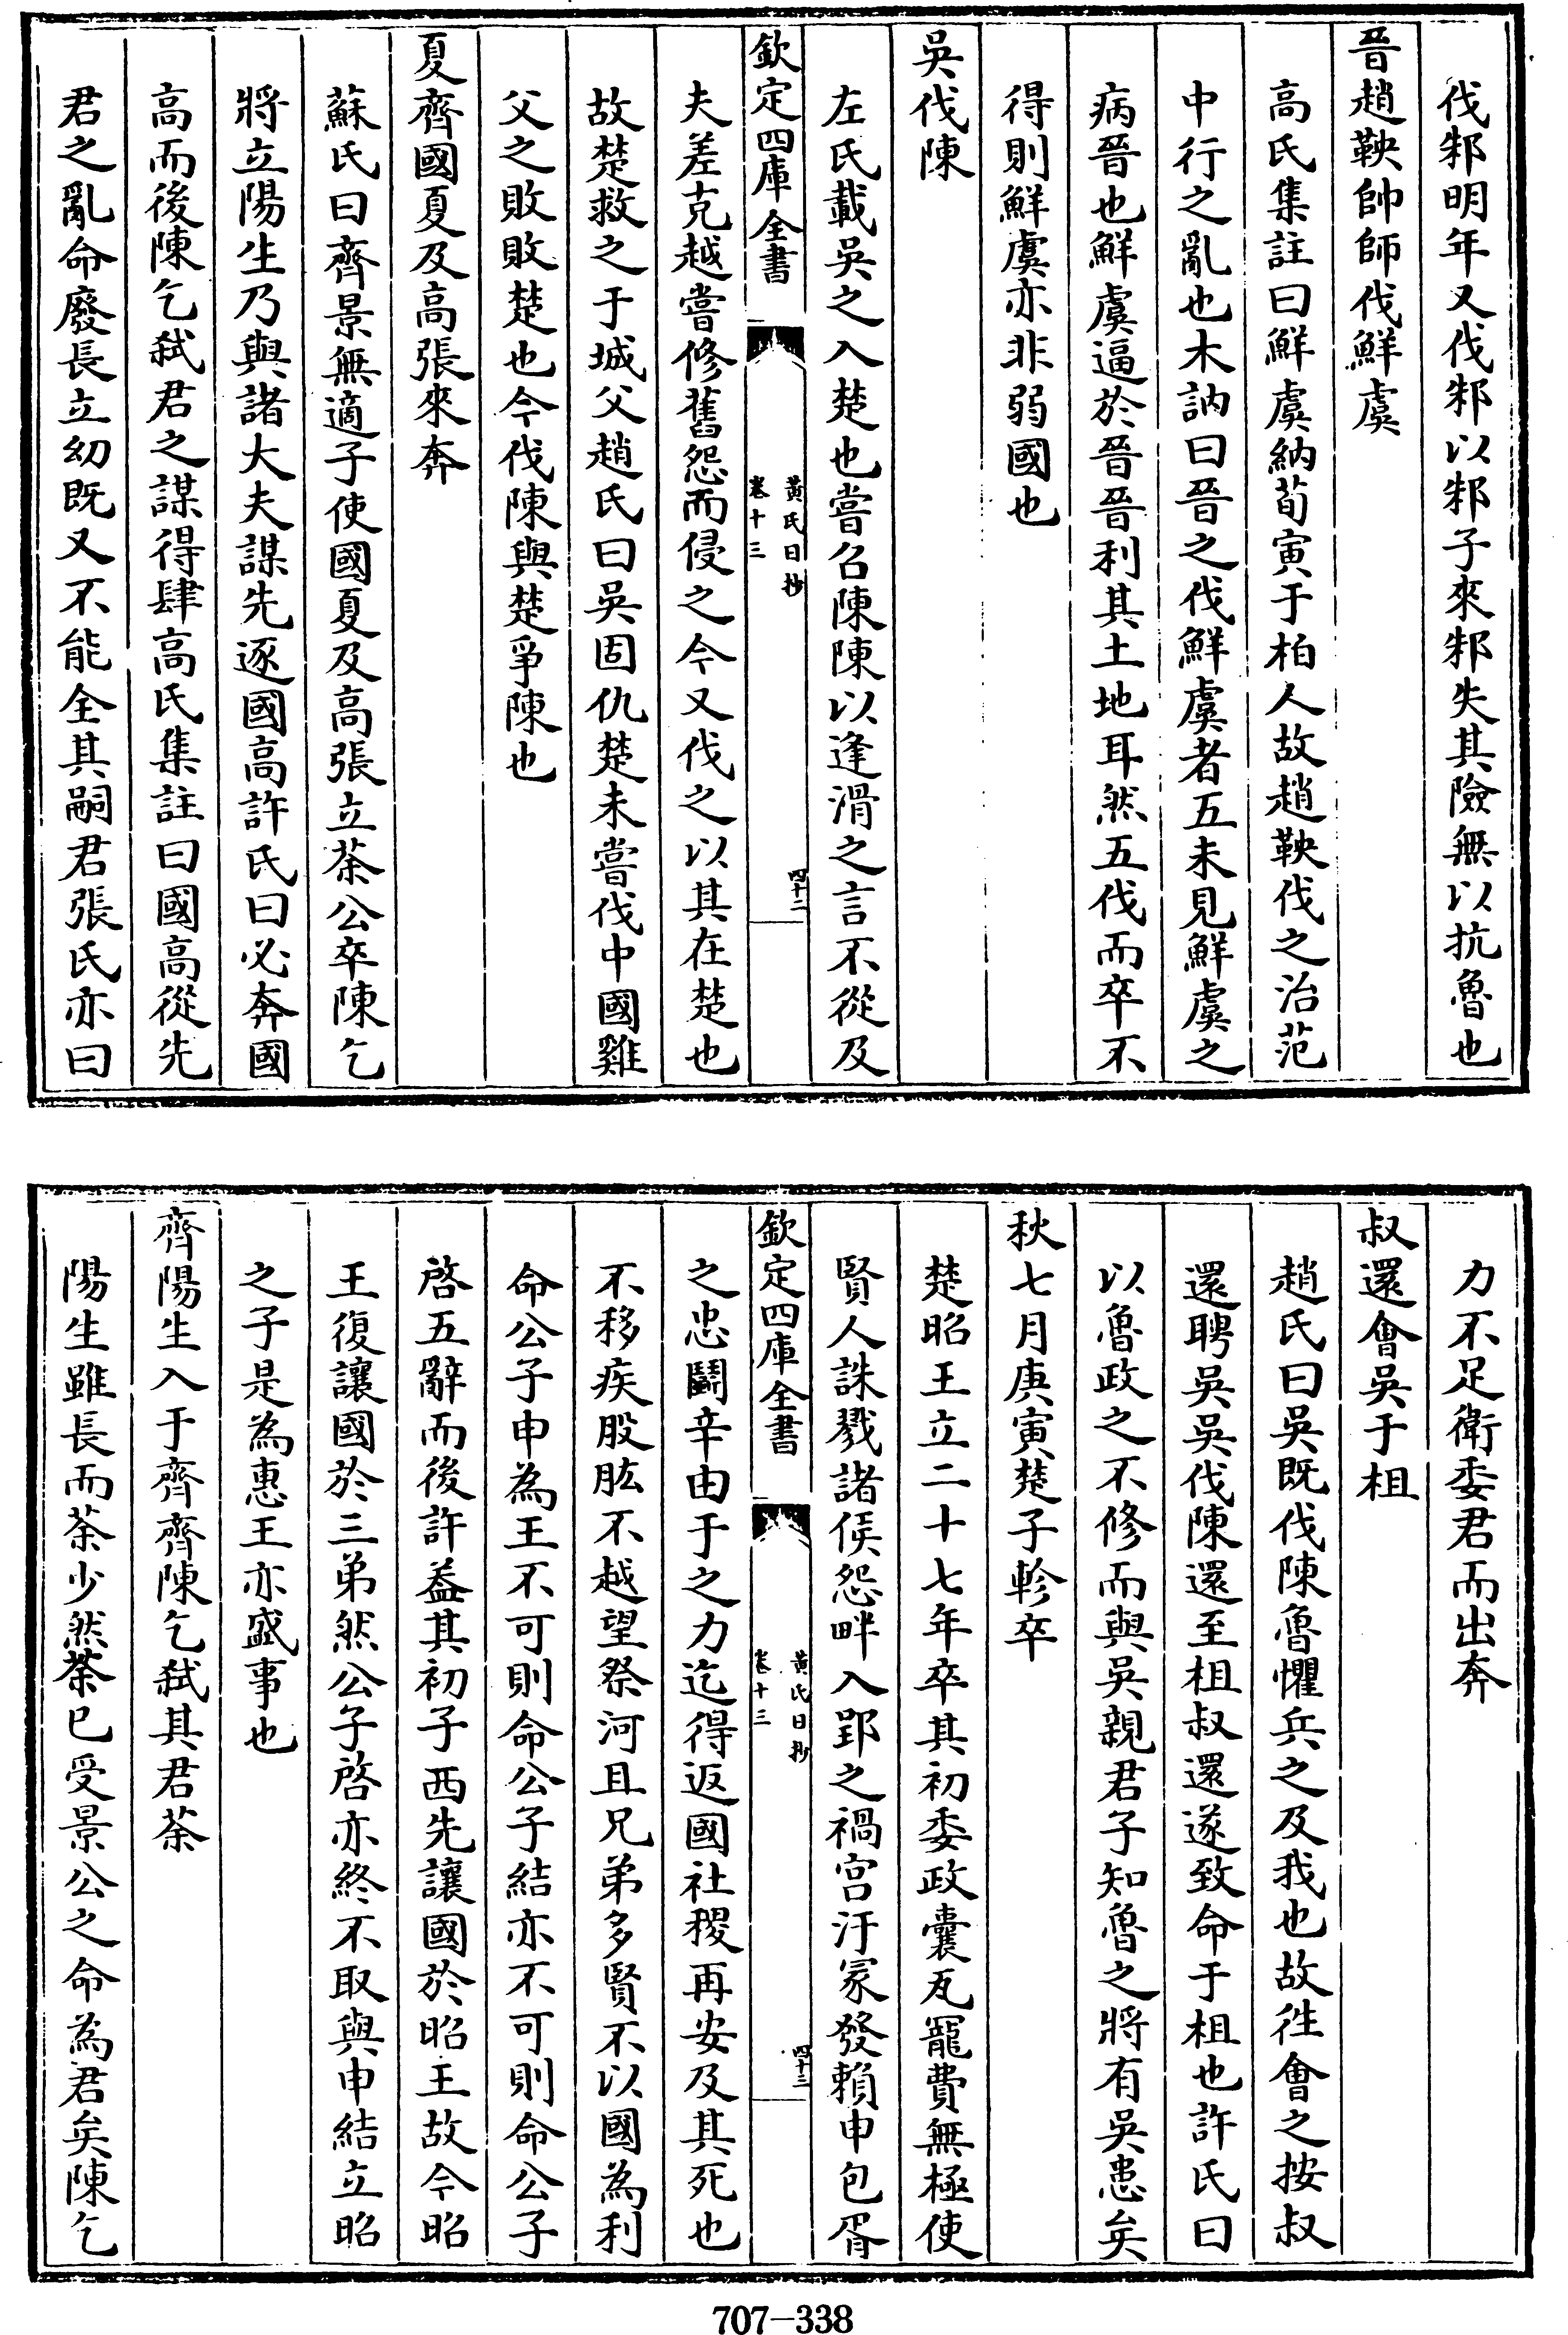 伐邾明年又伐邾以邾子來邾失其險無以抗魯也
晉趙鞅帥師伐鮮虞
高氏集註曰鮮虞納荀寅于柏人故趙鞅伐之治范
中行之亂也木訥曰晉之伐鮮虞者五未見鮮虞之
病晉也鮮虞逼於晉晉利其土地耳然五伐而卒不
得則鮮虞亦非弱國也
吳伐陳
左氏載吳之入楚也嘗召陳陳以逢滑之言不從及
欽定四庫全書
黃氏日抄
卷十三
四十二
夫差克越嘗修舊怨而侵之今又伐之以其在楚也
故楚救之于城父趙氏曰吳固仇楚未嘗伐中國雞
父之敗敗楚也今伐陳與楚爭陳也
夏齊國夏及高張來奔
蘇氏曰齊景無適子使國夏及高張立荼公卒陳乞
將立陽生乃與諸大夫謀先逐國高許氏曰必奔國
高而後陳乞弑君之謀得肆高氏集註曰國高從先
君之亂命廢長立幼既又不能全其嗣君張氏亦曰
力不足衛委君而出奔
叔還會吳于柤
趙氏曰吳既伐陳魯懼兵之及我也故徃會之按叔
還聘吳吳伐陳還至柤叔還遂致命于柤也許氏曰
以魯政之不修而與吳親君子知魯之將有吳患矣
秋七月庚寅楚子軫卒
楚昭王立二十七年卒其初委政囊瓦寵費無極使
賢人誅戮諸侯怨畔入郢之禍宫汙冢發賴申包胥
欽定四庫全書
黃氏日抄
卷十三
四十三
之忠鬬辛由于之力迄得返國社稷再安及其死也
不移疾股肱不越望祭河且兄弟多賢不以國為利
命公子申為王不可則命公子結亦不可則命公子
啓五辭而後許葢其初子西先讓國於昭王故今昭
王復讓國於三弟然公子啓亦終不取與申結立昭
之子是為惠王亦盛事也
齊陽生入于齊齊陳乞弑其君荼
陽生雖長而荼少然荼已受景公之命為君矣陳乞
707-338